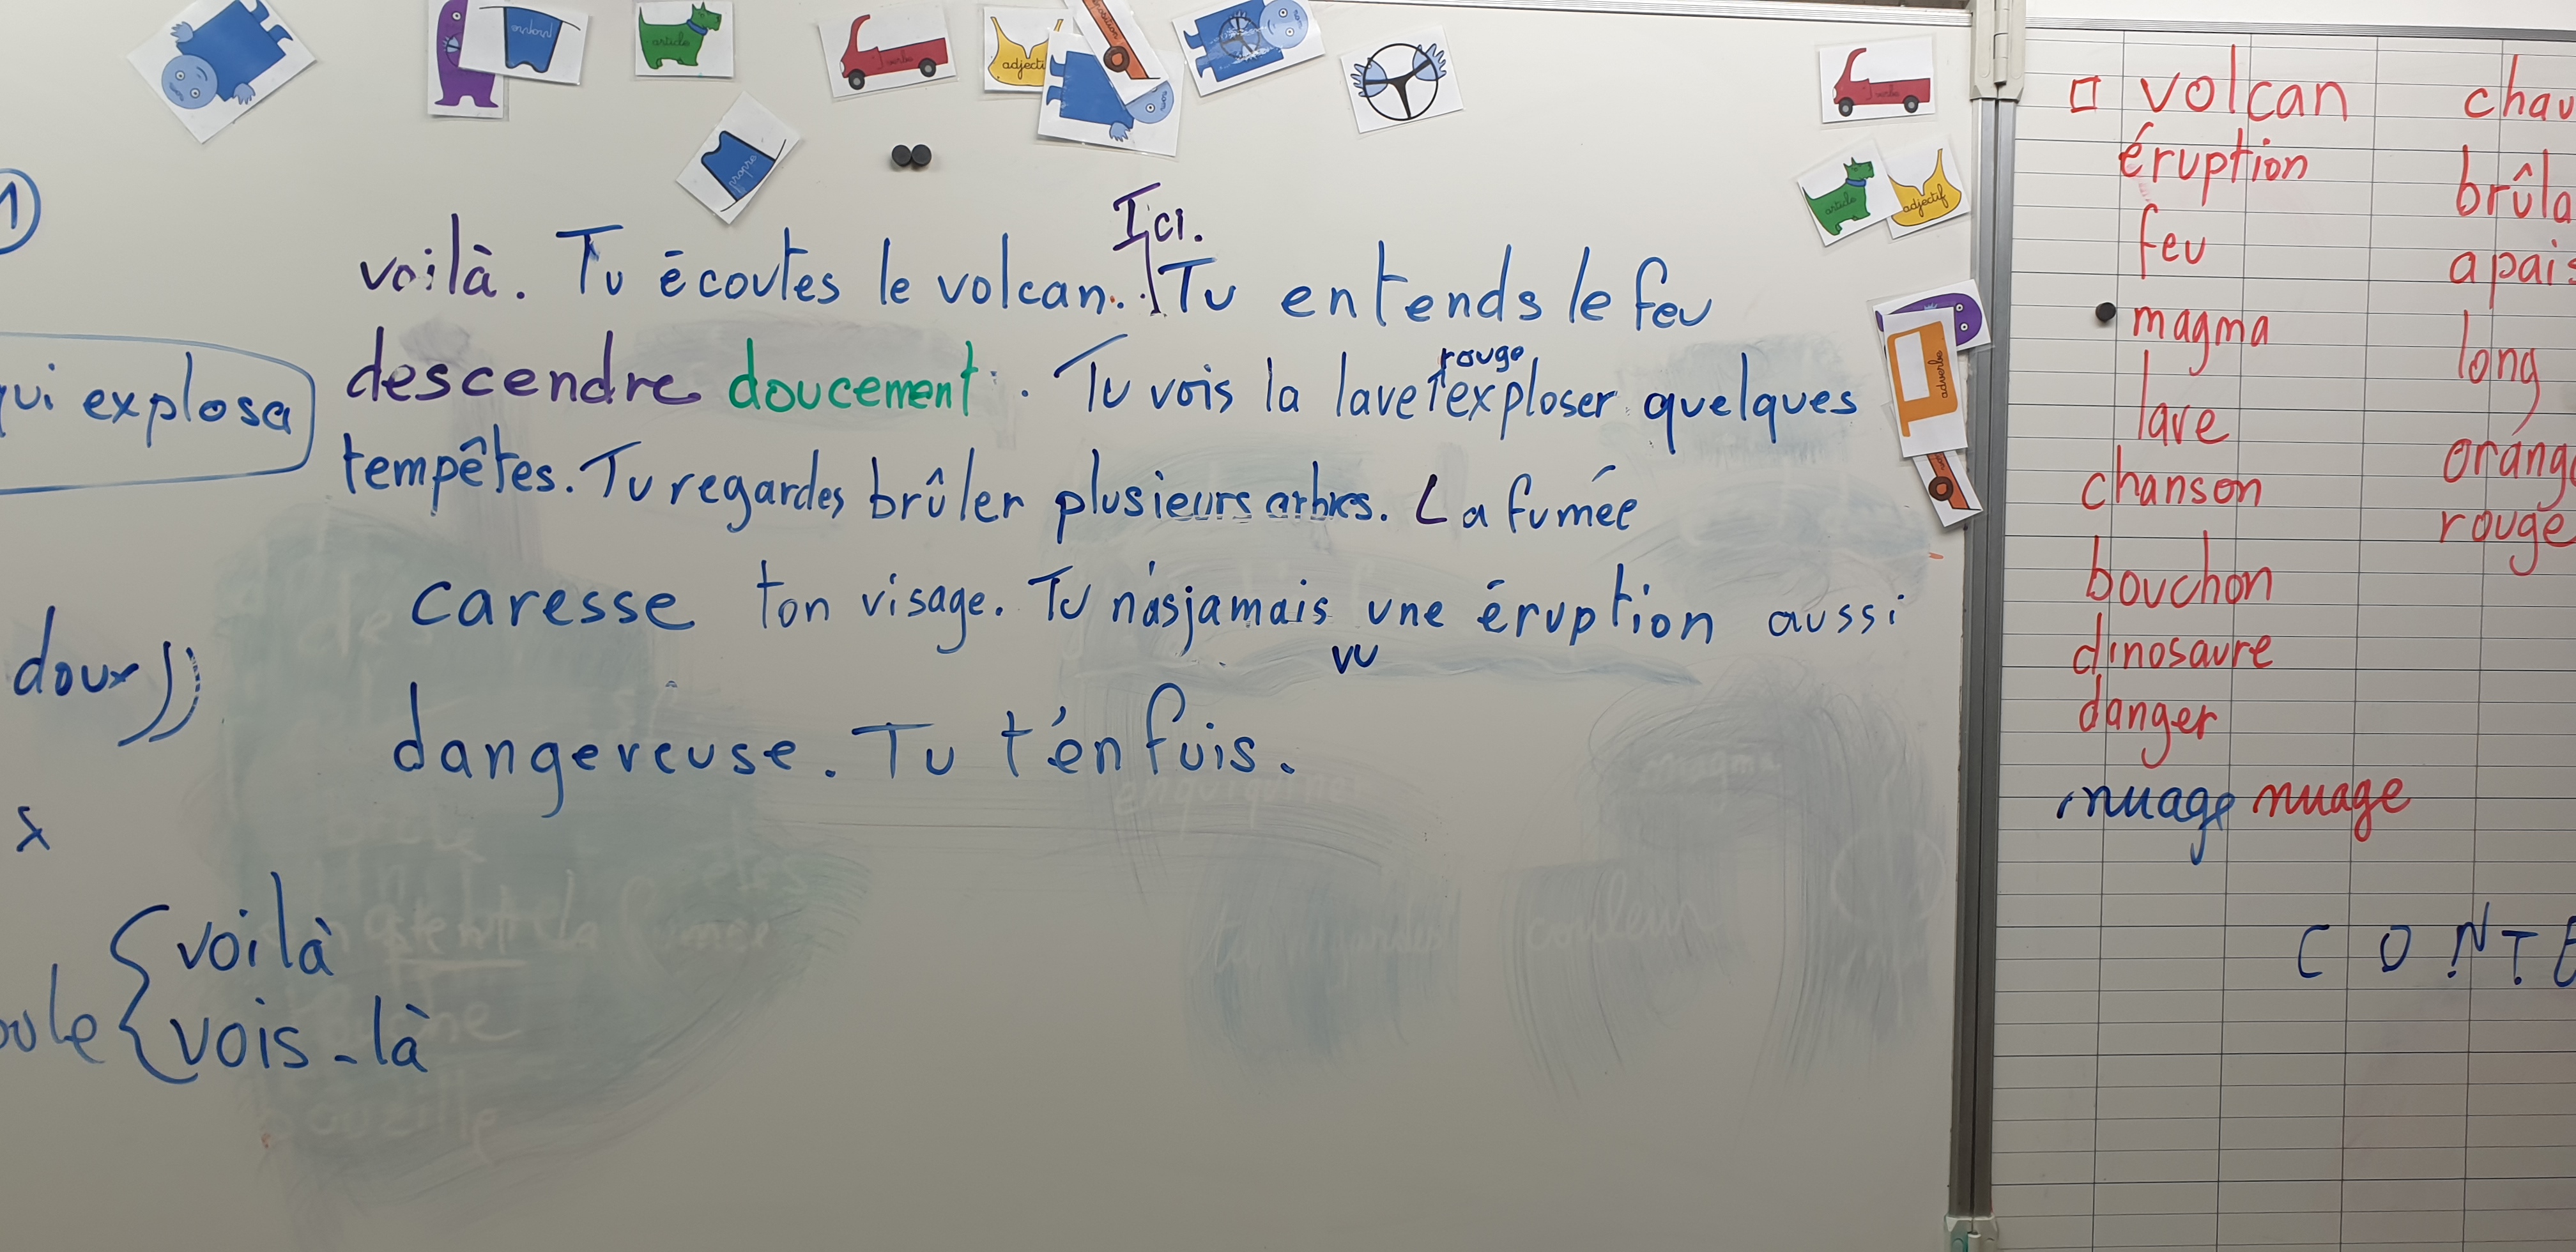 1
Ici.
voilà. Tu écoutes le volcan. Tu entends le feu
rouge
descendre doucement. Tu vois la lave exploser quelques
tempêtes. Tu regardes brûler plusieurs arbres. La fumée
caresse ton visage. Tu n'as jamais une éruption aussi
vu
dangereuse. Tu t'en fuis.
qui explosa
doux))
x
voilà
vois-là
article
verbe
adjectif
propre
verbe
article
adjectif
adverbe
volcan
éruption
feu
magma
lave
chanson
bouchon
dinosaure
danger
nuage nuage
chau
brûla
apais
long
orange
rouge
CONTE